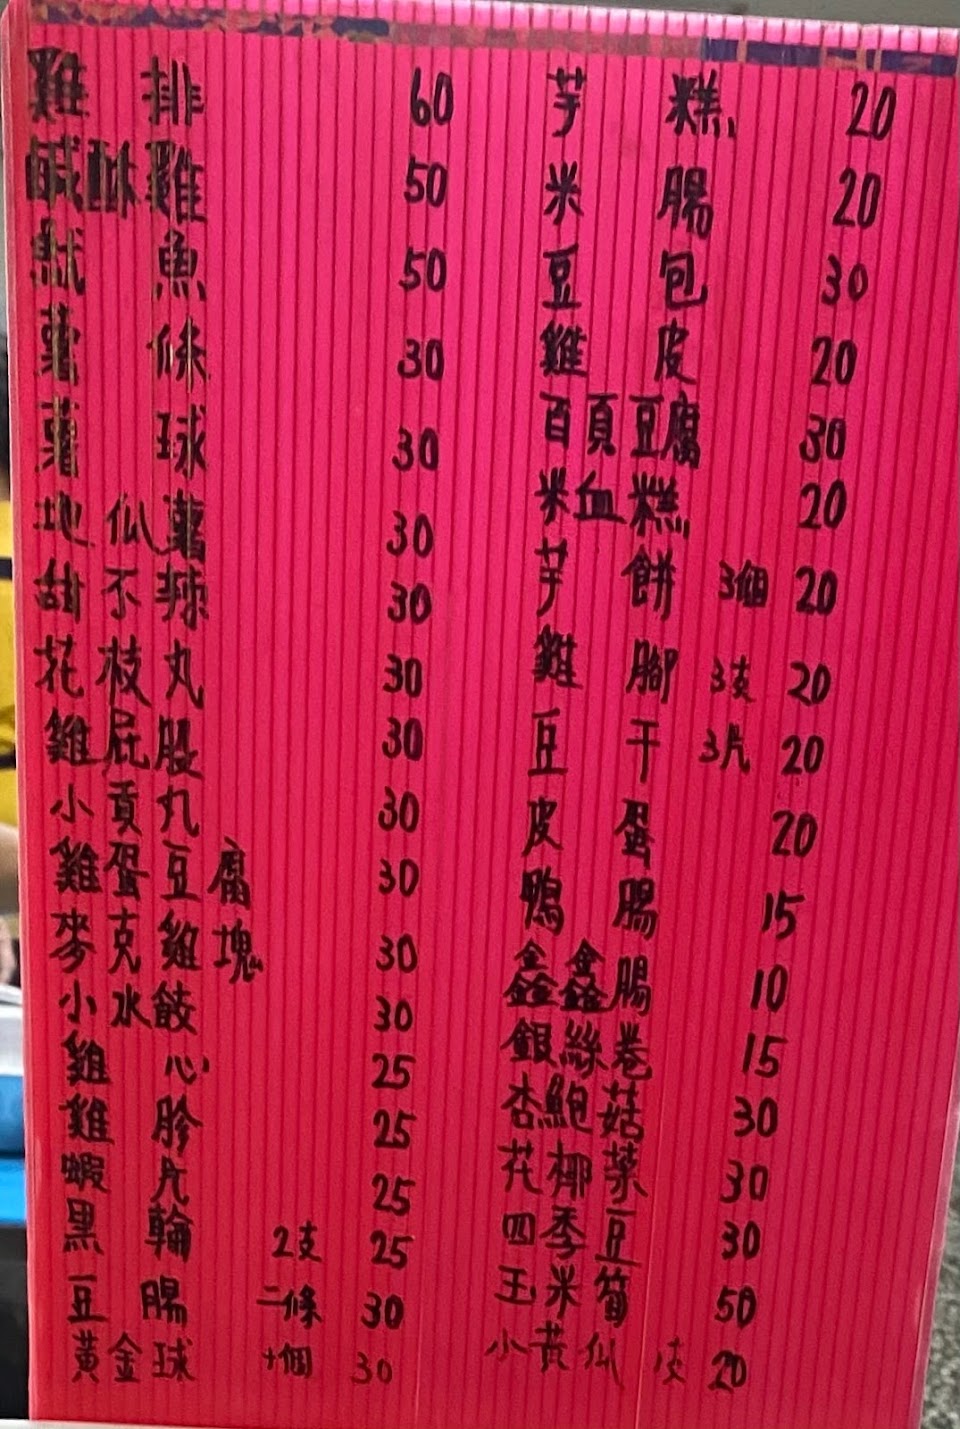 雞排 60
鹹酥雞 50
魷魚 50
薯條 30
薯球 30
地瓜薯 30
甜不辣 30
花枝丸 30
雞屁股 30
小貢丸 30
雞蛋豆腐 30
麥克雞塊 30
小水餃 30
雞心 25
雞胗 25
蝦丸 25
黑輪 2支 25
豆腸 二條 30
黃金球 十個 30
芋糕 20
米腸 20
豆包 30
雞皮 20
百頁豆腐 30
米血糕 20
芋餅 3個 20
雞腳 3支 20
豆干 3片 20
皮蛋 20
鴨腸 15
鑫鑫腸 10
銀絲卷 15
杏鮑菇 30
花椰菜 30
四季豆 30
玉米筍 50
小黃瓜 1支 20